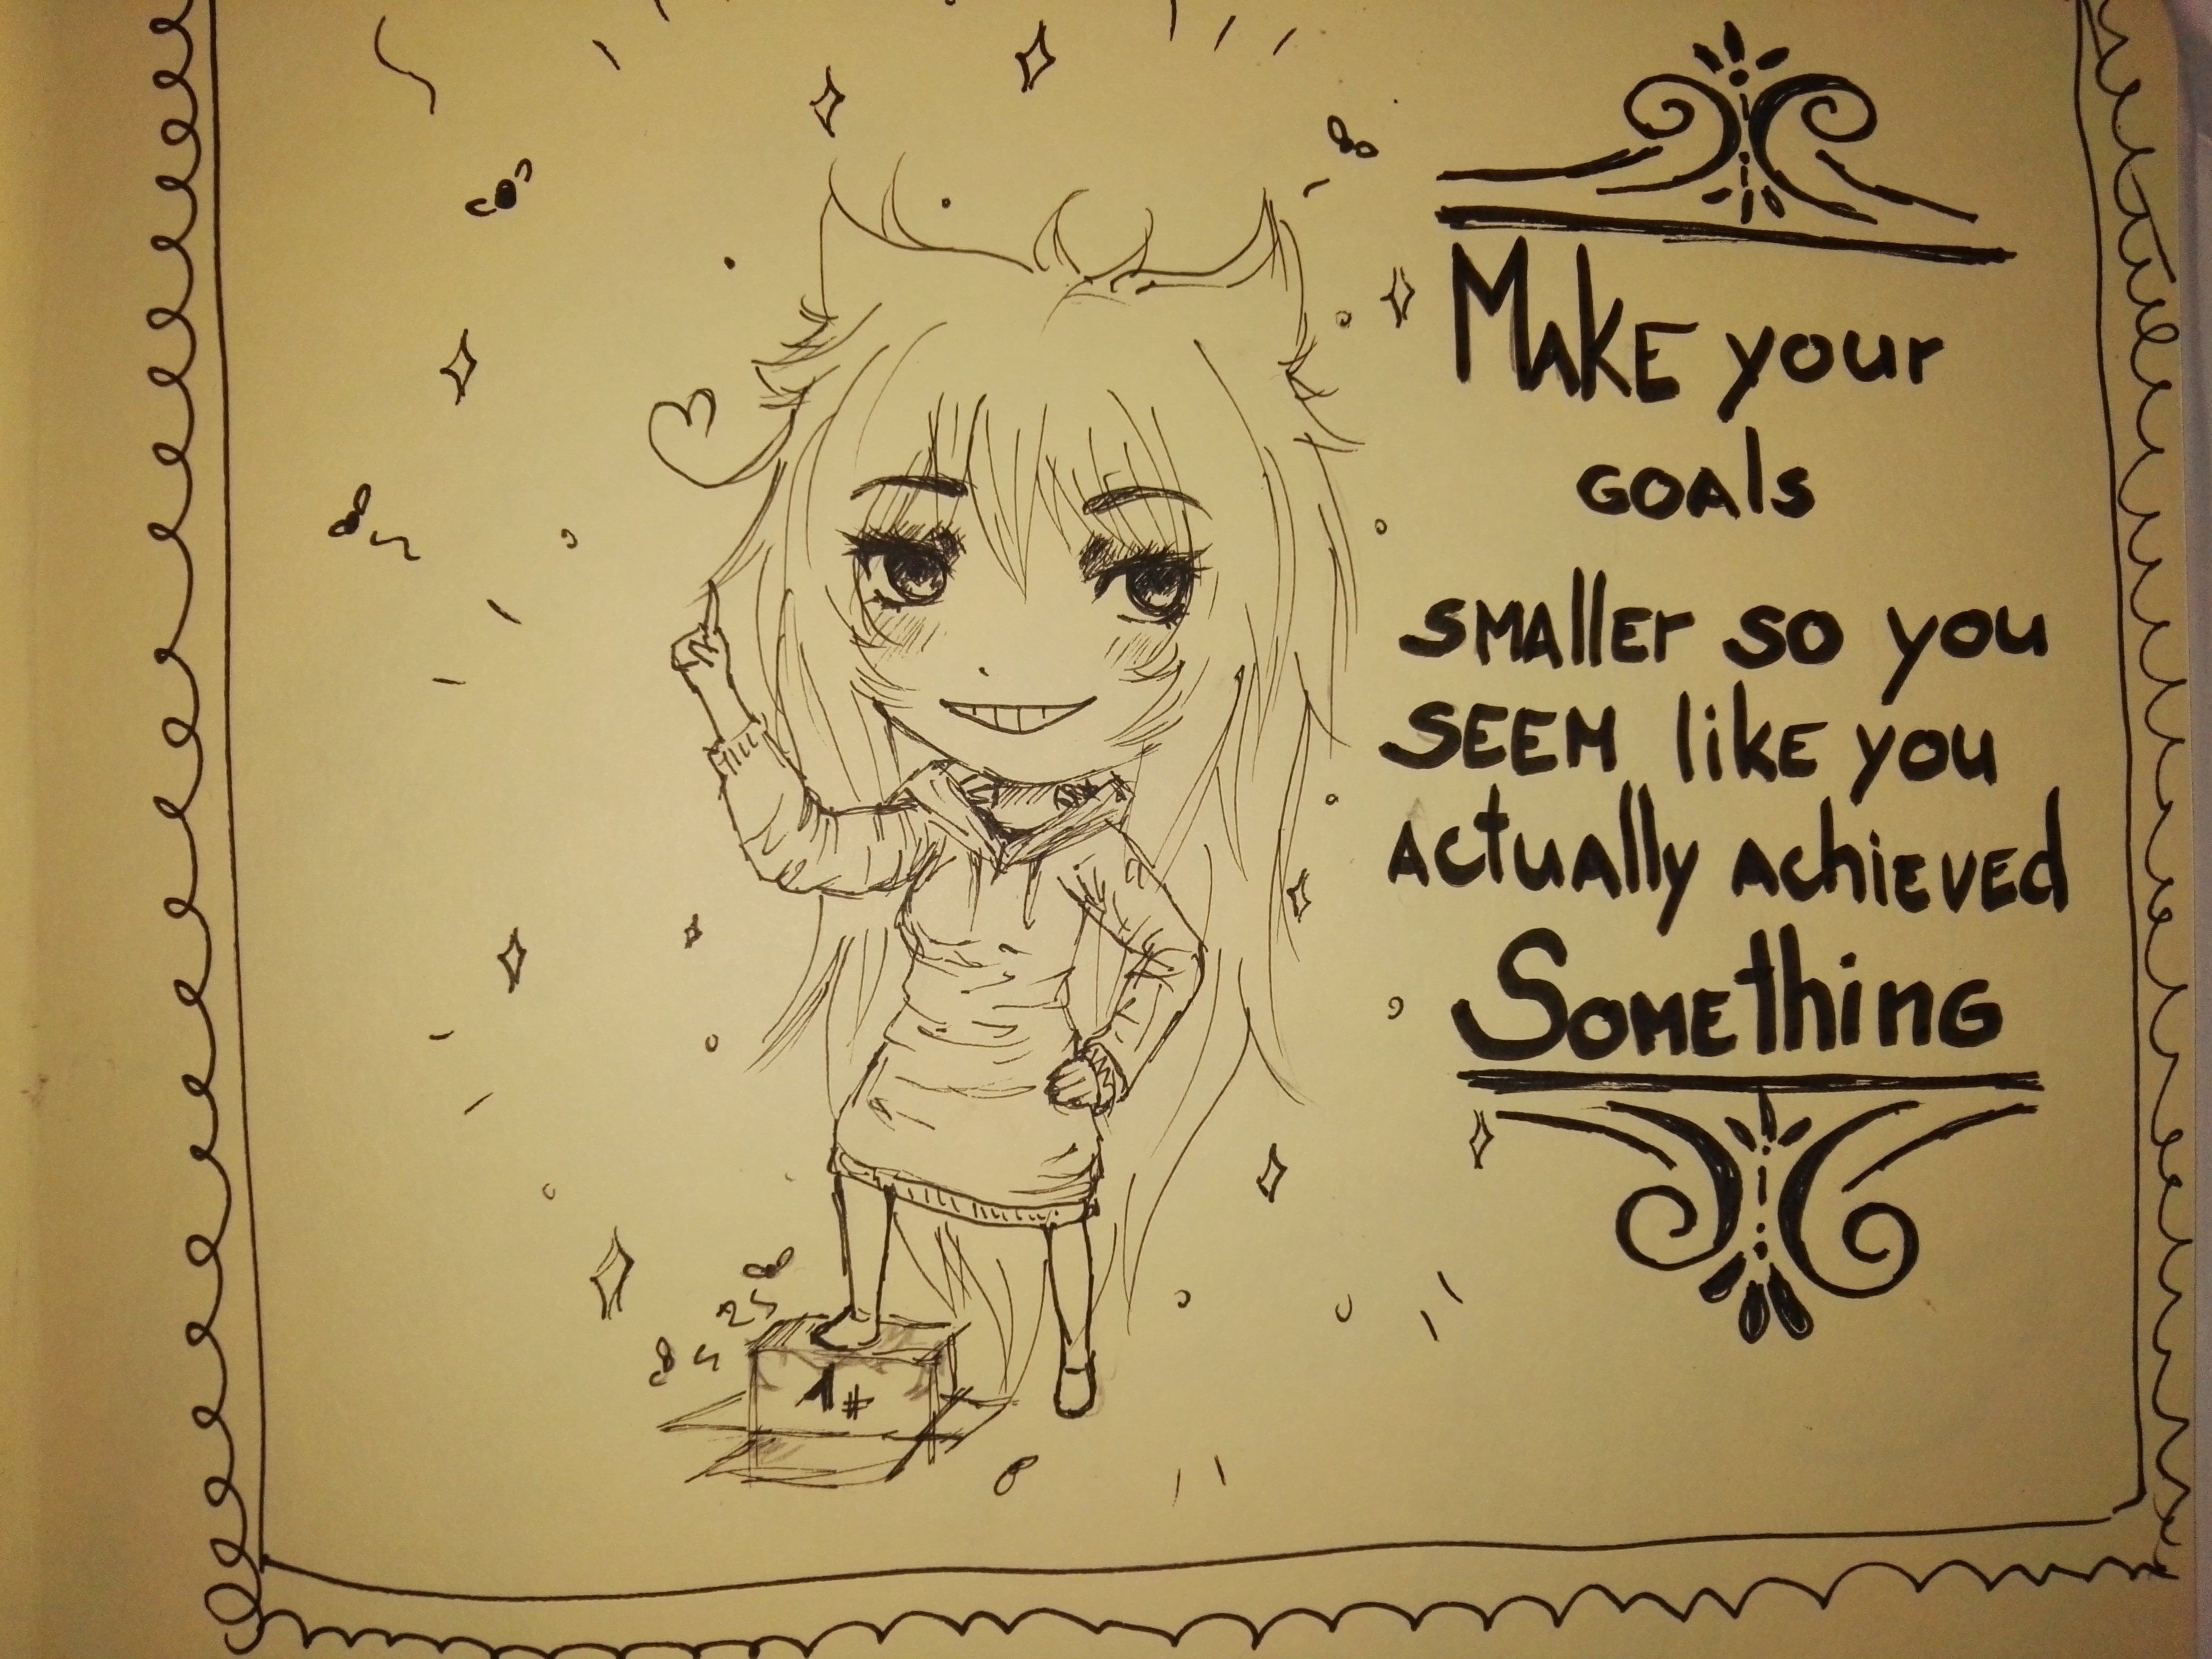 Make your
goals
smaller so you
seem like you
actually achieved
Something
1#